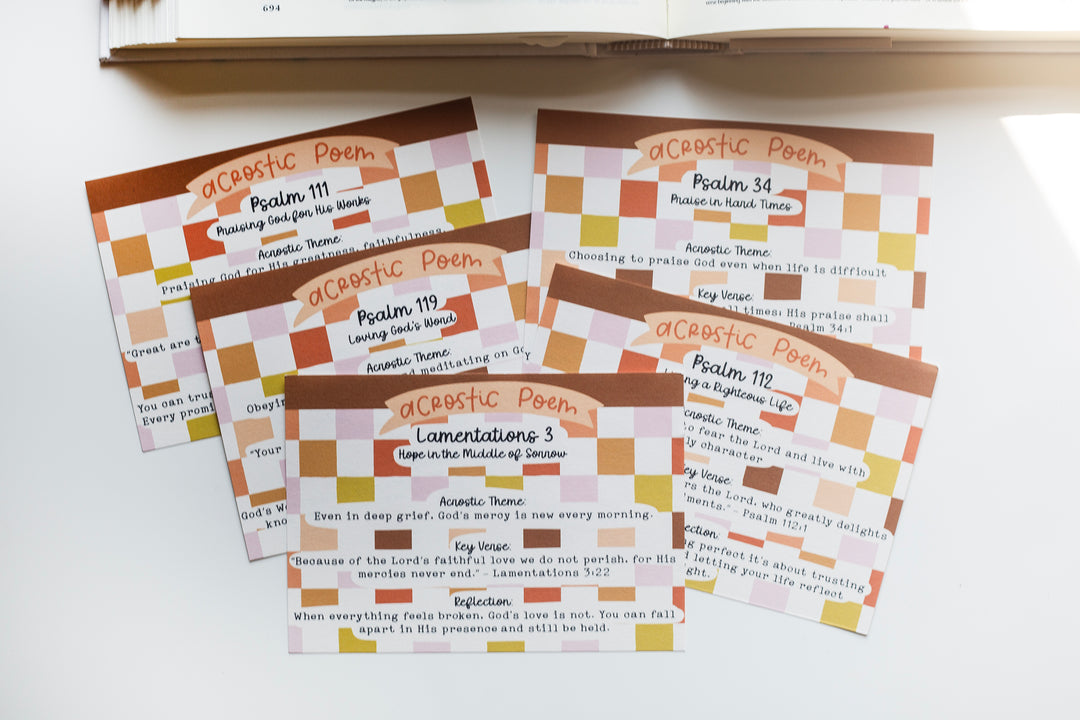 694
acrostic Poem
Psalm 111
Praising God for His Works
Acrostic Theme:
Praising God for His greatness, faithfulness,
"Great are t
You can tru
Every promi
acrostic Poem
Psalm 34
Praise in Hard Times
Acrostic Theme:
Choosing to praise God even when life is difficult
Key Verse:
all times; His praise shall
Psalm 34:1
acrostic Poem
Psalm 119
Loving God's Word
Acrostic Theme:
d meditating on Go
Obeyin
"Your
God's W
kno
acrostic Poem
Psalm 112
ing a Righteous Life
crostic Theme:
to fear the Lord and live with
ly character
ey Verse:
rs the Lord, who greatly delights
ments." - Psalm 112:1
ection:
g perfect it's about trusting
d letting your life reflect
ght.
acrostic Poem
Lamentations 3
Hope in the Middle of Sorrow
Acrostic Theme:
Even in deep grief, God's mercy is new every morning.
Key Verse:
"Because of the Lord's faithful love we do not perish, for His
mercies never end." - Lamentations 3:22
Reflection:
When everything feels broken, God's love is not. You can fall
apart in His presence and still be held.